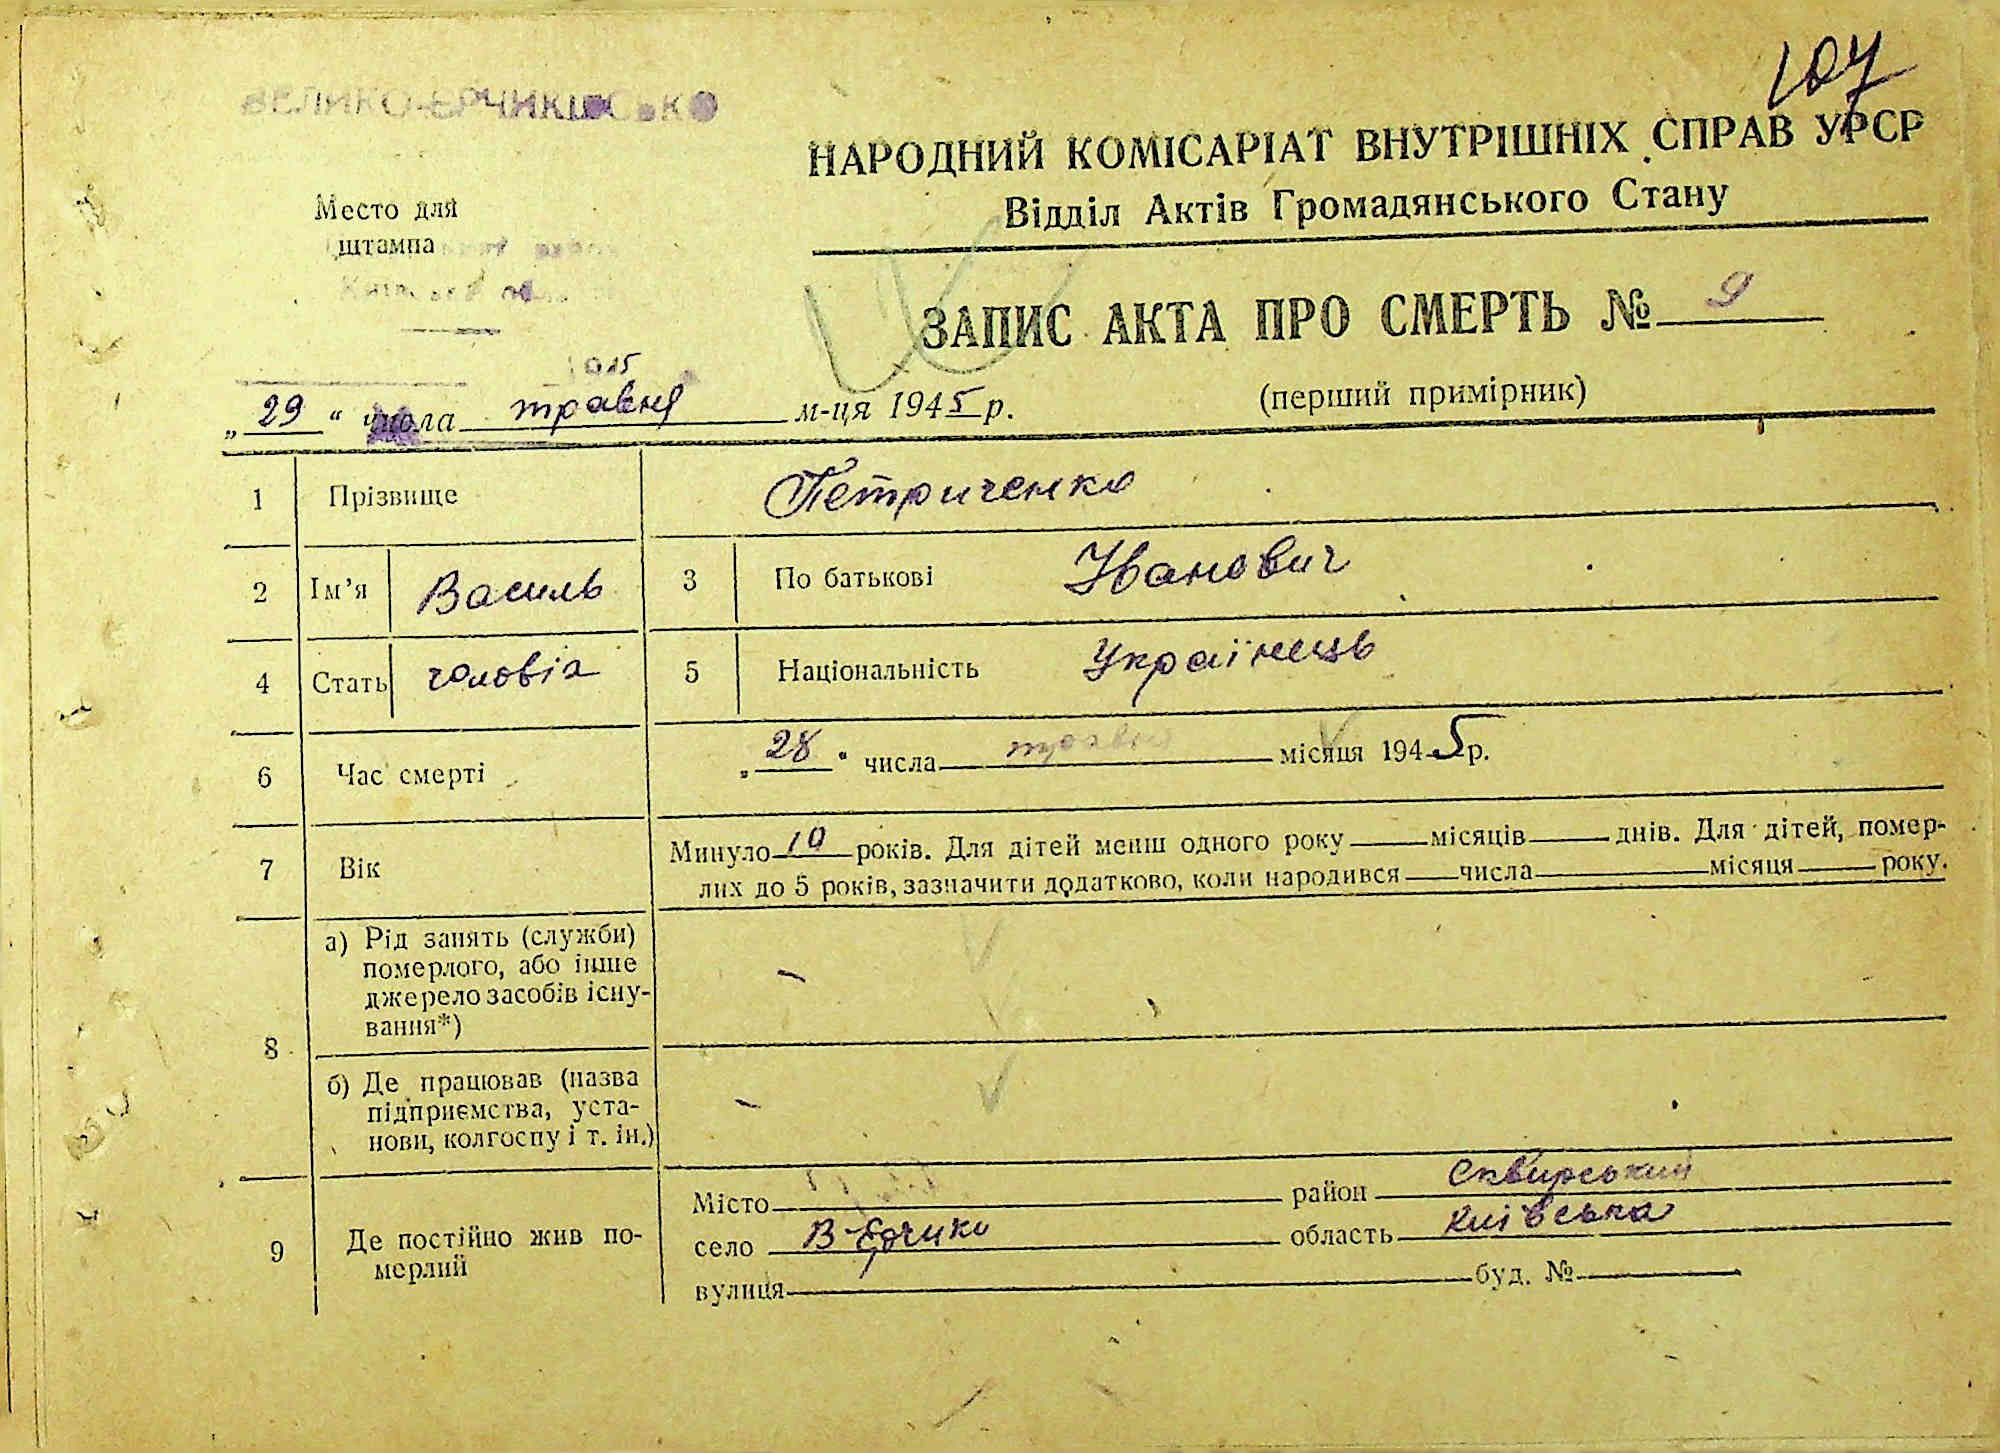 107
ВЕЛИКО-ЄРЧИКІВСЬКО
НАРОДНИЙ КОМІСАРІАТ ВНУТРІШНІХ СПРАВ УРСР
Відділ Актів Громадянського Стану
Место для
штампа
ЗАПИС АКТА ПРО СМЕРТЬ № 9
(перший примірник)
„29“ числа травня м-ця 1945 р.
1 Прізвище Петриченко
2 Ім'я Василь 3 По батькові Іванович
4 Стать чоловік 5 Національність Українець
6 Час смерті „28“ числа травня місяця 1945 р.
7 Вік Минуло 19 років. Для дітей менш одного року місяців днів. Для дітей, помер-
лих до 5 років, зазначити додатково, коли народився числа місяця року.
8 а) Рід занять (служби)
померлого, або інше
джерело засобів існу-
вання*) -
б) Де працював (назва
підприємства, уста-
нови, колгоспу і т. ін.) -
9 Де постійно жив по-
мерлий
Місто район Сквирський
село В-Єрчики область Київська
вулиця буд. №